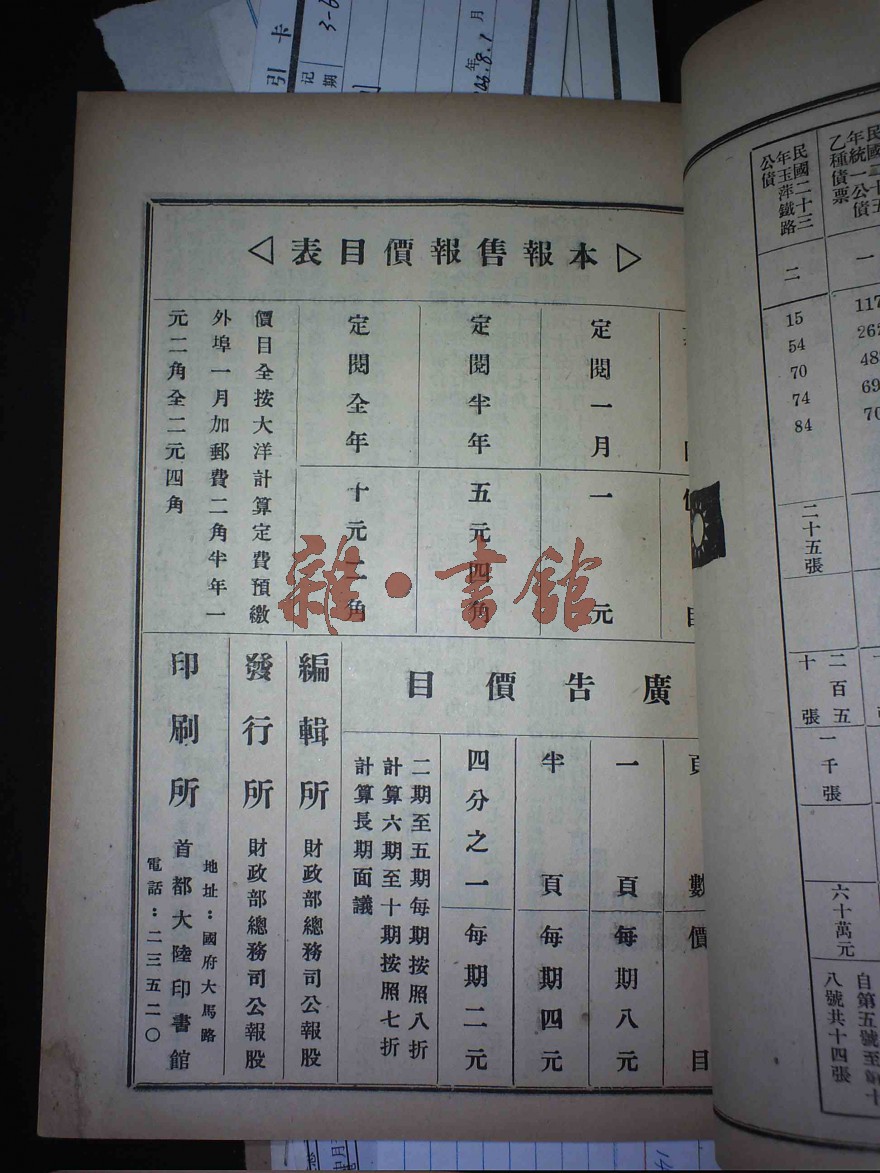 ▷本報售報價目表◁
目
價目
定閱一月
一元
定閱半年
五元四角
定閱全年
十元二角
價目全按大洋計算定費預繳
外埠一月加郵費二角半年一
元二角全二元四角
廣告價目
頁數
價目
一頁
每期八元
半頁
每期四元
四分之一
每期二元
二期至五期每期按照八折
計算六期至十期按照七折
計算長期面議
編輯所 財政部總務司公報股
發行所 財政部總務司公報股
印刷所 首都大陸印書館
地址：國府大馬路
電話：二三五二〇
雜·書館
民國二十三
年玉萍鐵路
公債
二
15
54
70
74
84
二十五張
二百五
十張
一千張
六十萬元
八號共十四張
乙種債票
年統一公債
一
引卡